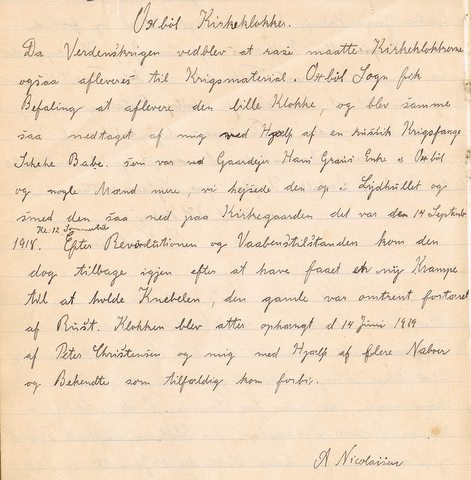 Oxböl Kirkeklokke.
Da Verdenskrigen vedblev at rase maatte Kirkeklokkerne
ogsaa afleveres til Krigsmaterial. Oxböl Sogn fik
Befaling at aflevere den lille Klokke, og blev samme
saa nedtaget af mig ved Hjælp af en russisk Krigsfange
Babe. som var ved Gaardejer Hans Enke i Oxböl
og nogle Mænd mere, vi hejsede den op i Lydhullet og
smed den saa ned paa Kirkegaarden det var den 14 Septemb
Kl. 12 Sommertid
1918. Efter Revolutionen og Vaabenstilstanden kom den
dog tilbage igjen efter at have faaet en ny Krampe
til at holde Knebelen, den gamle var omtrent fortæret
af Rust. Klokken blev atter ophængt d 14 Juni 1919
af Peter Christensen og mig med Hjælp af flere Naboer
og Bekendte som tilfældig kom forbi.
A Nicolaisen